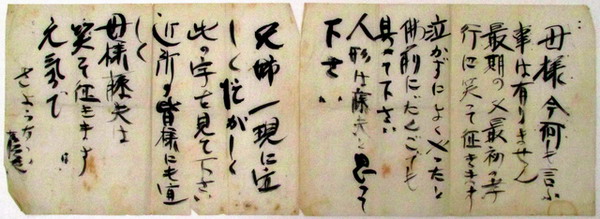 母様今何も言ふ
事は有りません
最期の又最初の孝
行に笑って征きます
泣かずによくやったと
佛前にだんごでも
具へて下さい
人形は藤夫と思って
下さい
兄姉一現に宜
しく忙がしく
此の字を見て下さい
近所の皆様にも宜
しく
母様藤夫は
笑って征きます
元気で
さようなら
藤夫